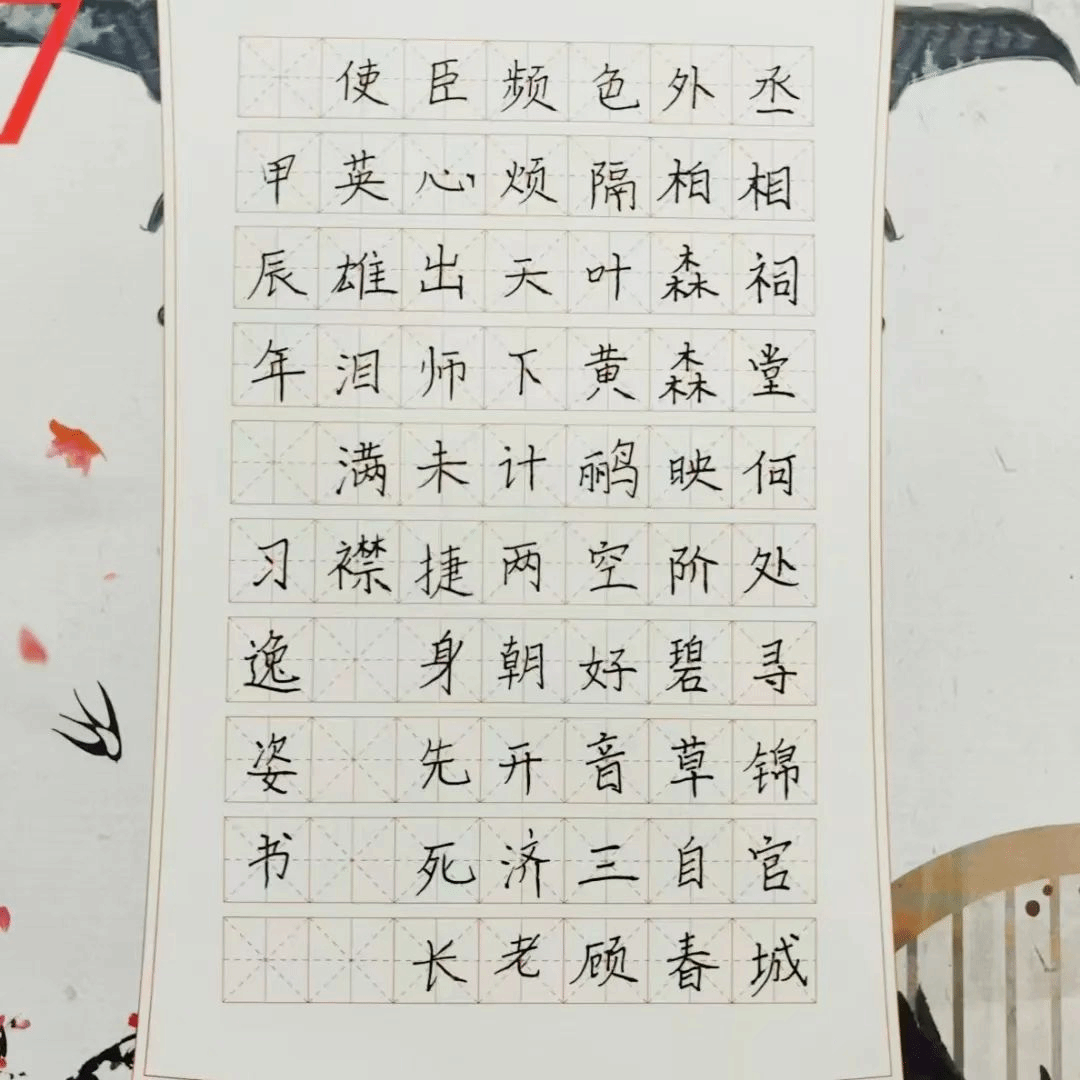 丞相祠堂何处寻锦官城
外柏森森映阶碧草自春
色隔叶黄鹂空好音三顾
频烦天下计两朝开济老
臣心出师未捷身先死长
使英雄泪满襟
甲辰年 习逸姿书